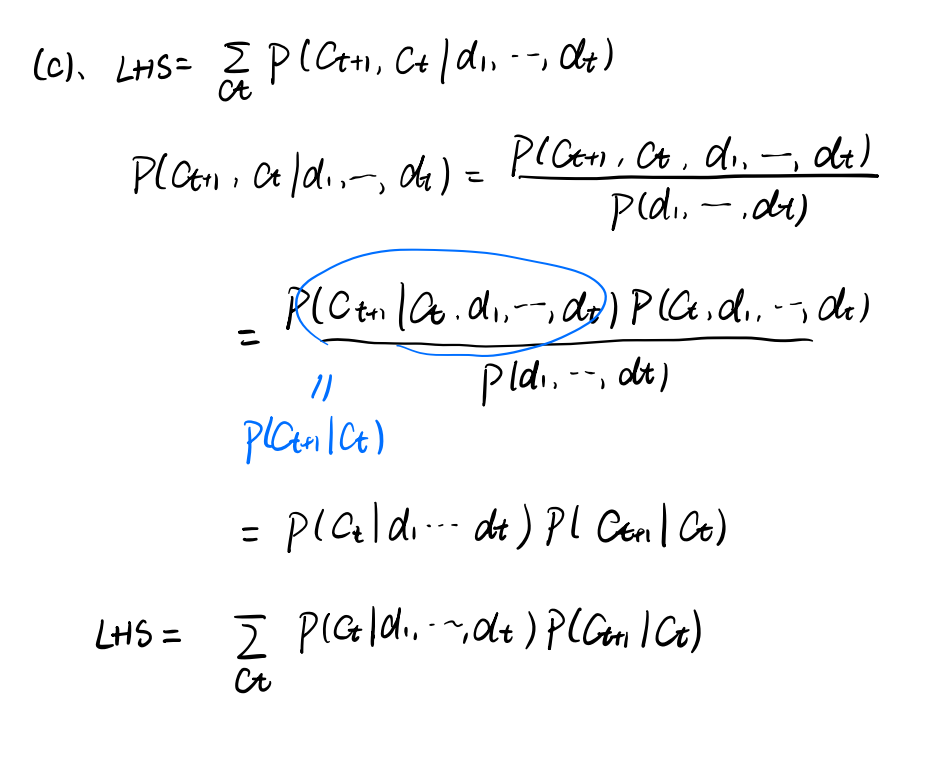 (c)、 LHS = Σ_{Ct} P(Ct+1, Ct | d1, --, dt)
P(Ct+1, Ct | d1, –, dt) = P(Ct+1, Ct, d1, –, dt) / P(d1, –, dt)
= P(Ct+1 | Ct, d1, --, dt) P(Ct, d1, --, dt) / P(d1, --, dt)
||
P(Ct+1 | Ct)
= P(Ct | d1 --- dt) P(Ct+1 | Ct)
LHS = Σ_{Ct} P(Ct | d1, -~, dt) P(Ct+1 | Ct)